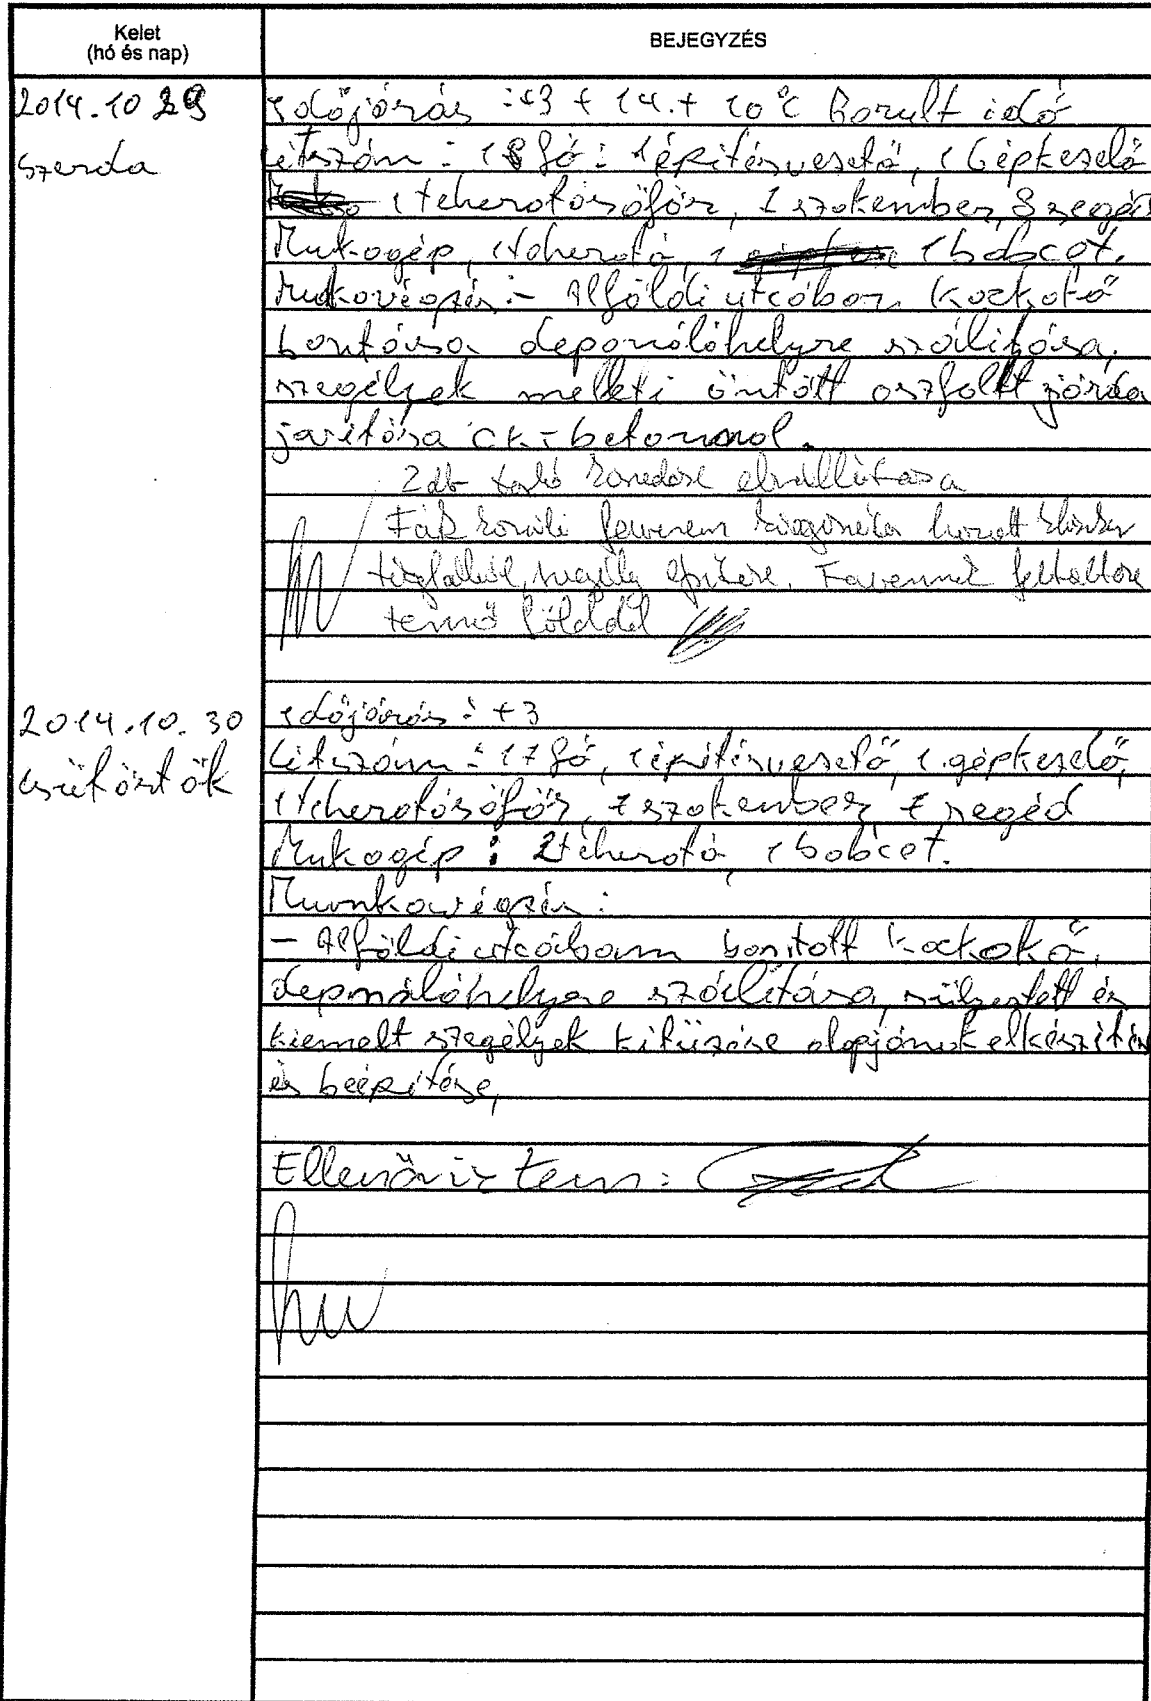 Kelet
(hó és nap)
BEJEGYZÉS
2014.10 29
szerda
Időjárás : +3 + 14. + 10 °C Borult idő
Létszám : 18 fő : 1 építésvezető, 1 Gépkezelő
1 teherotósöfőr, szakember, 8 segéd
Mukagép, 1 teherotó, 1 1 bobcat.
Mukavégzés : - Alföldi utcában kockakő
bontása deponálóhelyre szálitása,
szegélyek melleti öntött aszfalt járda
javitása ck-betonnal.
2 db elszállitása
Fák körüli
szegély épitése. feltöltése
termő földdel
2014.10.30
csütörtök
Időjárás : +3
Létszám : 17 fő, 1 épitésvezető, 1 gépkezelő,
1 teherotósöfőr, 7 szakember, 7 segéd
Mukagép : 2 teherotó, 1 bobcet.
Munkavégzés :
- Alföldi utcában bontott kockakő,
deponálóhelyre szálitása, sülyesztett és
kiemelt szegélyek kitüzése alapjának elkészítés
és beépitése,
Ellenőriztem :